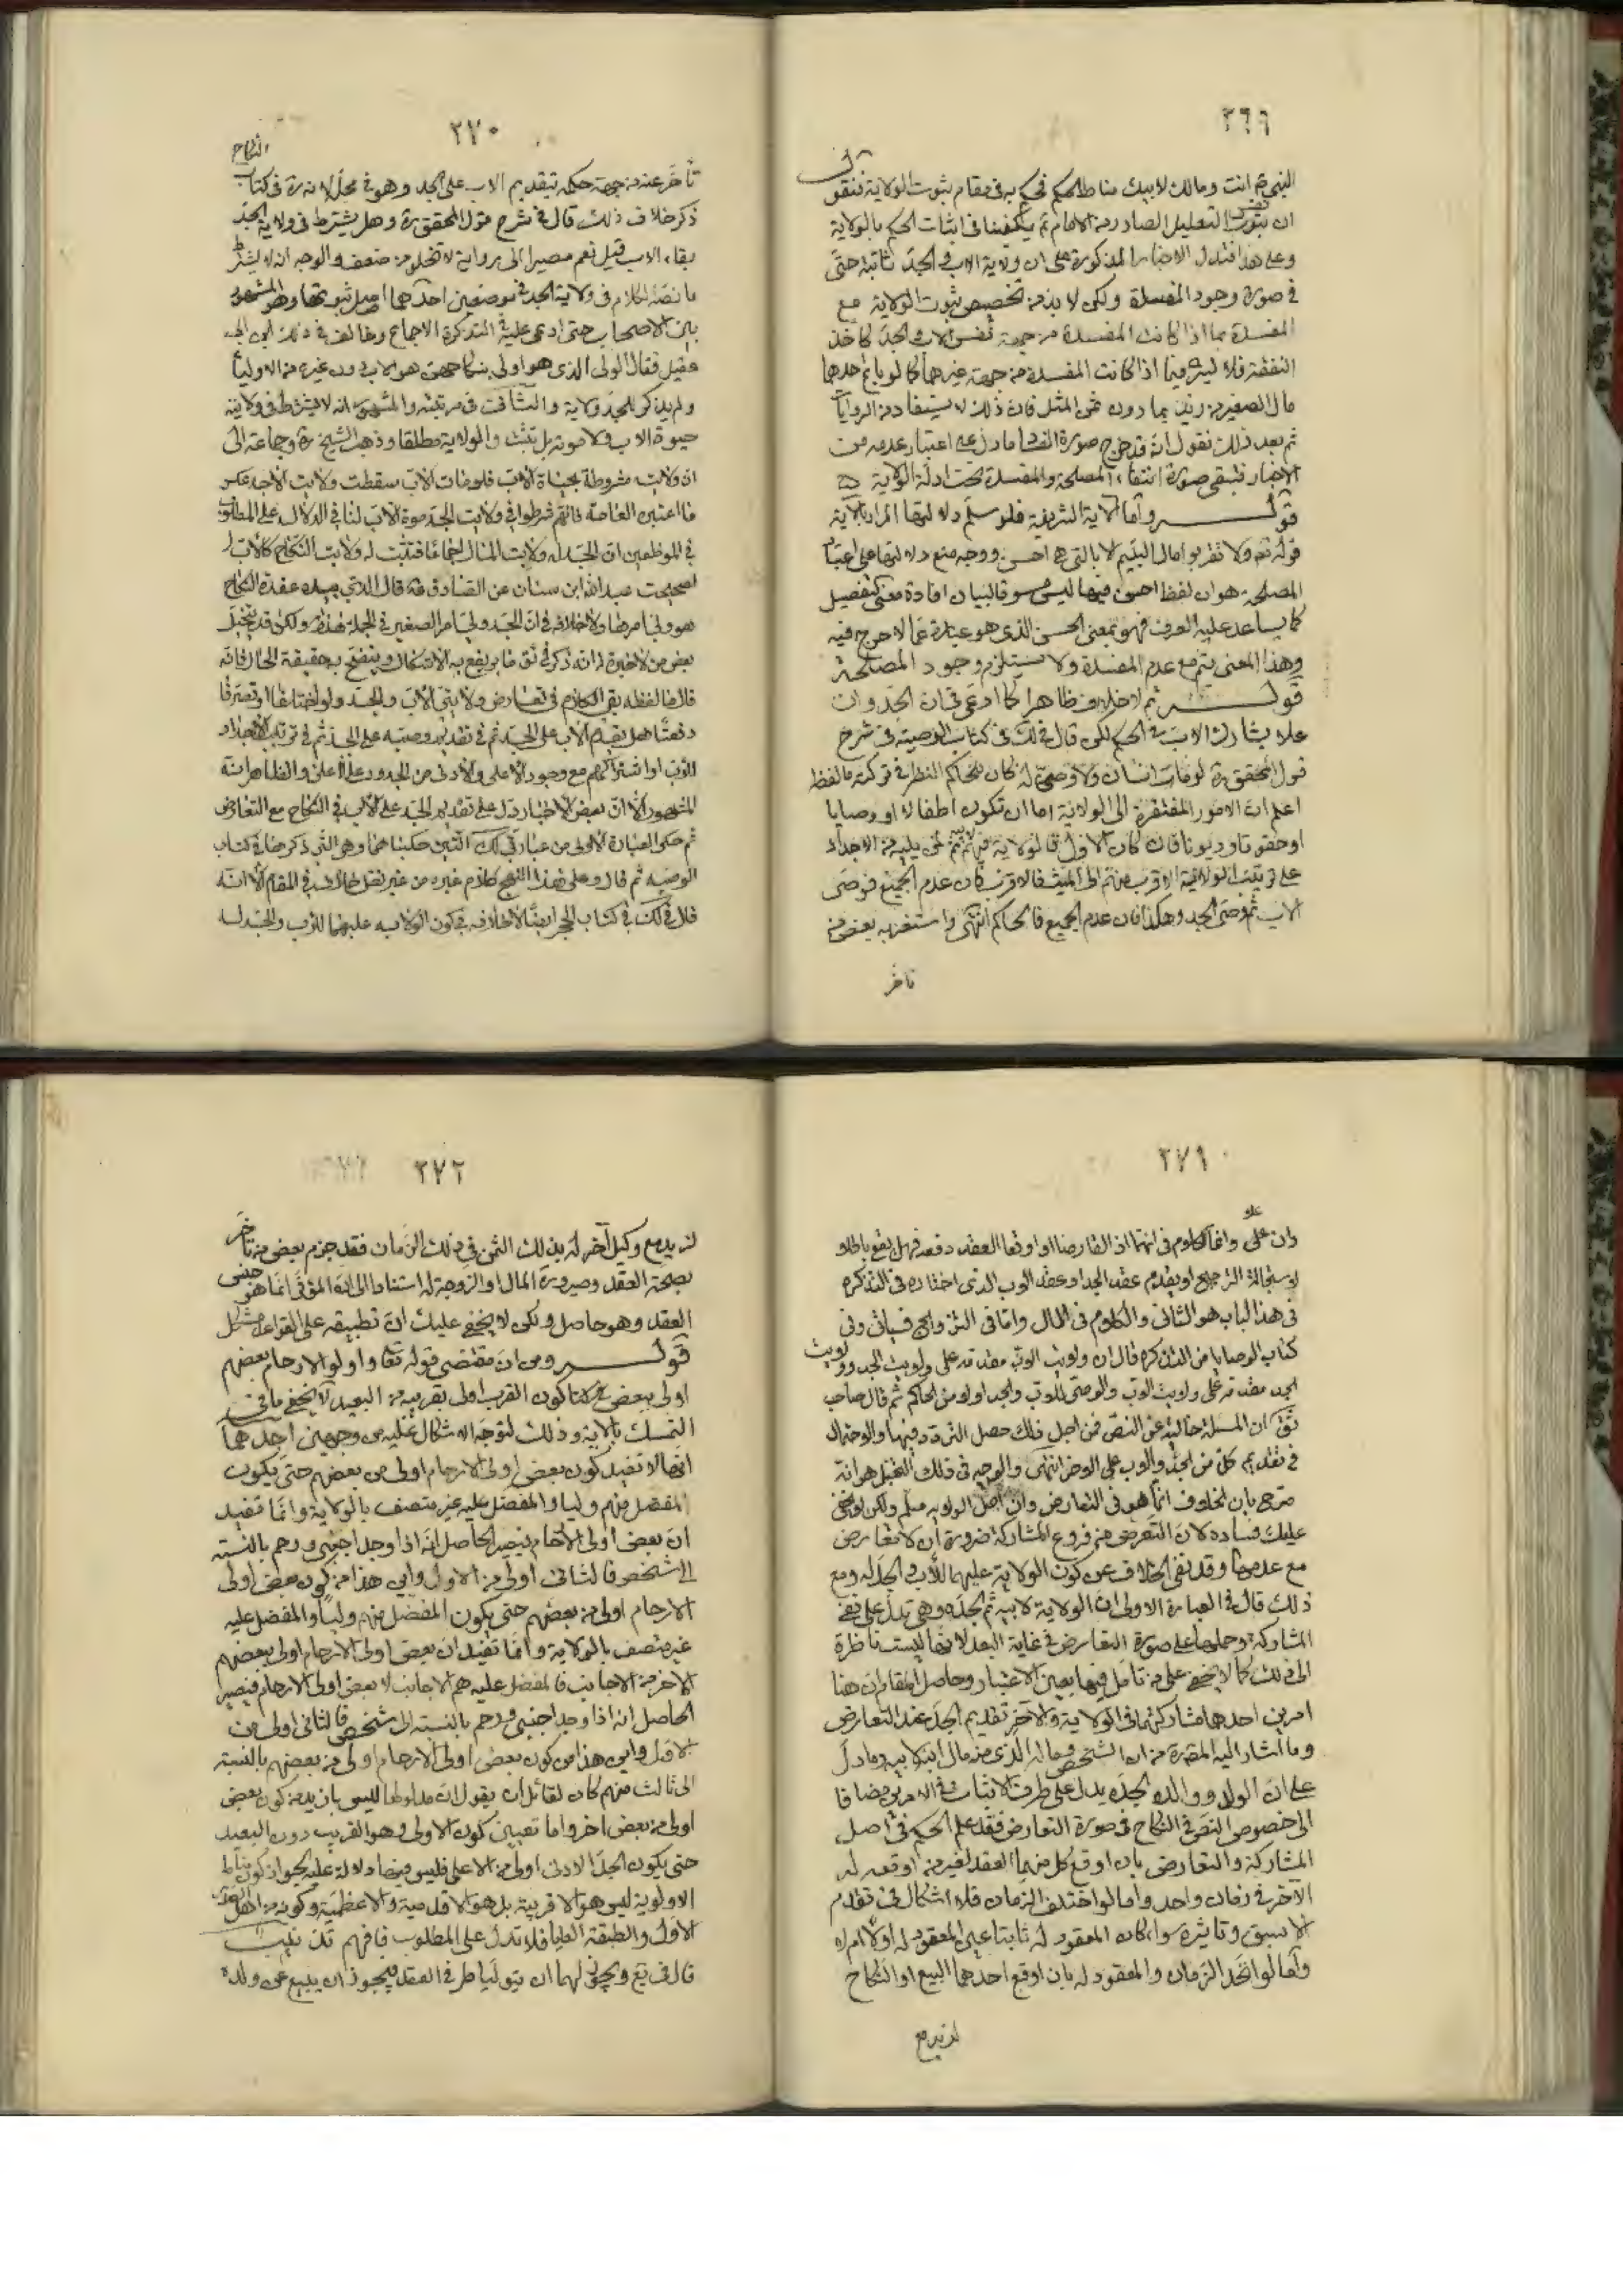 ٢٦٩
النبي ص انت ومالك لابيك مناط للحكم فيحكم به في مقام ثبوت الولاية فنقول
ان التعليل الصادر من الامام ع يكفينا في اثبات الحكم بالولاية
وعلى هذا فتدل الاخبار المذكورة على ان ولاية الاب والجد ثابتة حتى
في صورة وجود المفسدة ولكن لا بد من تخصيص ثبوت الولاية مع
المفسدة بما اذا كانت المفسدة من جهة نفس الاب والجد كاخذ
النفقة فلا فيما اذا كانت المفسدة من جهة غيرهما كما لو باع احدهما
مال الصغير من زيد بما دون ثمن المثل فان ذلك لا يستفاد من الروايات
ثم بعد ذلك نقول انه قد خرج صورة الفساد ما دل على اعتبار عدمه من
الاخبار فتبقى صورة انتفاء المصلحة والمفسدة تحت ادلة الولاية
قوله واما الآية الشريفة فلو سلم دلالتها المراد بالآية
قوله تعالى ولا تقربوا مال اليتيم الا بالتي هي احسن ووجه منع دلالتها على اعتبار
المصلحة هو ان لفظ احسن فيها ليس مسوقا لبيان افادة معنى التفضيل
كما يساعد عليه العرف فهو بمعنى الحسن الذي هو عبارة عما لا حرج فيه
وهذا المعنى يتم مع عدم المفسدة ولا يستلزم وجود المصلحة
قوله ثم لا خلاف ظاهرا كما ادعى في ان الجد وان
علا يشارك الاب في الحكم لكن قال في لك في كتاب الوصية في شرح
قول المحقق ره لو مات انسان ولا وصي له كان للحاكم النظر في تركته ما لفظه
اعلم ان الامور المفتقرة الى الولاية اما ان تكون اطفالا او وصايا
او حقوقا وديونا فان كان الاول فالولاية فيهم لابيه ثم لمن يليه من الاجداد
على ترتيب الولاية الاقرب منهم الى الميت فالاقرب فان عدم الجميع فوصي
الاب ثم وصي الجد وهكذا فان عدم الجميع فالحاكم انتهى واستغربه بعض من
تاخر
٢٧٠
النكاح
تأخر عنه من جهة حكمه بتقديم الاب على الجد وهو في محله لانه ره في كتاب
ذكر خلاف ذلك قال في شرح قول المحقق ره وهل يشترط في ولاية الجد
بقاء الاب قيل نعم مصيرا الى رواية لا تخلو من ضعف والوجه انه لا يشترط
ما نصه الكلام في ولاية الجد في موضعين احدهما اصل ثبوتها وهو المشهور
بين الاصحاب حتى ادعى عليه في التذكرة الاجماع وخالف في ذلك ابن ابي
عقيل فقال الولي الذي هو اولى بنكاحهن هو الاب دون غيره من الاولياء
ولم يذكر للجد ولاية والثاني في مرتبته والمشهور انه لا يشترط في ولايته
حيوة الاب ولا موته بل تثبت الولاية مطلقا وذهب الشيخ ره وجماعة الى
ان ولايته مشروطة بحياة الاب فلو مات الاب سقطت ولايت الاجد عكس
ما اعتبره العامة فانهم شرطوا في ولايت الجد موت الاب لنا في الدلالة على المطلوب
في الموضعين ان الجد له ولايت المال اجماعا فتثبت له ولايت النكاح كالاب
لصحيحت عبد الله ابن سنان عن الصادق قال الذي بيده عقدة النكاح
هو ولي امرها ولا خلاف في ان الجد ولي امر الصغير في الجملة هذا ولكن قد يتخيل
بعض من الاخيرة لانه ذكر في لك ما يرتفع به الاشكال ويتضح به حقيقة الحال فانه
قال ما لفظه بقي الكلام في تعارض ولايتي الاب والجد ولو اجتمعا او تصرفا
دفعتا هل يقدم الاب على الجد ثم في تقديم وصيه على الجد ثم في ترتيب الاجداد
للاب او اشتراكهم مع وجود الاعلى والادنى من الجدود على الاعلى والظاهر انه
المشهور الا ان بعض الاخبار دل على تقديم الجد على الاب في النكاح مع التعارض
ثم حكى العبارة الاولى من عبارتي لك التين حكيناهما وهو التي ذكرها في كتاب
الوصيه ثم قال وعلى هذا النهج كلام غيره من غير نقل خلاف في المقام الا انه
قال في لك في كتاب الحجر ايضا لا خلاف في كون الولايه عليهما للاب والجد له
٢٧١
وان على وانما الكلام في انهما اذا تعارضا او اوقعا العقد دفعه فهل يقع باطلا
لاستحالة الترجيح او يقدم عقد الجد او عقد الاب الذي اختاره في التذكره
في هذا الباب هو الثاني والكلام في المال واما في التزويج فسياتي وفي
كتاب الوصايا من التذكره قال ان ولايت الاب مقدمه على ولايت الجد وولايت
الجد مقدمه على ولايت الاب والوصي للاب والجد اولى من الحاكم ثم قال صاحب
لك ان المسئلة خالية عن النص فمن اجل ذلك حصل التردد فيها والاحتمال
في تقديم كل من الجد والاب على الاخر انتهى والوجه في ذلك التخيل هو انه
صرح بان الخلاف انما هو في التعارض وان اصل الولايه مسلم ولكن لا يخفى
عليك فساده لان التعرض من فروع المشاركة ضرورة ان لا تعارض
مع عدمها وقد نفى الخلاف عن كون الولاية عليهما للاب والجد له ومع
ذلك قال في العبارة الاولى ان الولاية لابيه ثم لجده وهي تدل على نفي
المشاركة وحملها على صورة التعارض في غاية البعد لانها ليست ناظرة
الى ذلك كما لا يخفى على من تأمل فيها بعين الاعتبار وحاصل المقام ان هنا
امرين احدهما مشاركتهما في الولاية والآخر تقديم الجد عند التعارض
وما اشار اليه المصنف ره من ان الشخص وماله الذي من مال ابنه لابيه وما دل
على ان الولد ووالده لجده يدل على طرف الاثبات في الامرين مضافا
الى خصوص النص في النكاح في صورة التعارض فقد علم الحكم في اصل
المشاركة والتعارض بان اوقع كل منهما العقد لغير من اوقعه له
الآخر في زمان واحد واما لو اختلف الزمان فلا اشكال في تقدم
الاسبق وتاثيره سواء كان المعقود له ثابتا عين المعقود له اولا ام لا
واما لو اتحد الزمان والمعقود له بان اوقع احدهما البيع او النكاح
لزيد مع
٢٧٢
لزيد مع وكيل آخر له بذلك الثمن في ذلك الزمان فقد جزم بعض من تاخر
بصحة العقد وصيرورة المال او الزوجة له استنادا الى ان المؤثر انما هو جنس
العقد وهو حاصل ولكن لا يخفى عليك ان تطبيقه على القواعد مشكل
قوله ومن ان مقتضى قوله تعا واولو الارحام بعضهم
اولى ببعض كون القريب اولى بقريبه من البعيد لا يخفى ما في
التمسك بالاية وذلك لتوجه الاشكال عليه من وجهين احدهما
انها لا تفيد كون بعض اولى الارحام اولى من بعضهم حتى يكون
المفضل منهم وليا والمفضل عليه غير متصف بالولاية وانما تفيد
ان بعض اولى الارحام فيصير الحاصل انه اذا وجد اجنبي ورحم بالنسبة
الى شخص فالثاني اولى من الاول واين هذا من كون بعض اولى
الارحام اولى من بعضهم حتى يكون المفضل منهم وليا والمفضل عليه
غير متصف بالولاية وانما تفيد ان بعض اولى الارحام اولى ببعضهم
الاخر من الاجانب فالمفضل عليه هم الاجانب لا بعض اولى الارحام فيصير
الحاصل انه اذا وجد اجنبي ورحم بالنسبة الى شخص فالثاني اولى من
الاول واين هذا من كون بعض اولى الارحام اولى من بعضهم بالنسبة
الى ثالث منهم كان لقائل ان يقول ان مدلولها ليس بازيد من كون بعض
اولى من بعض اخر واما تعيين كون الاولى هو القريب دون البعيد
حتى يكون الجد الادنى اولى من الاعلى فليس فيها دلالة عليه لجواز كون مناط
الاولوية ليس هو الاقربية بل هو الاقدمية والاعظمية وكونه من اهل
الاول والطبقة العليا فلا تدل على المطلوب فافهم تذنيب
قال في يع ويجوز لهما ان يتوليا طرفي العقد فيجوز ان يبيع عن ولده